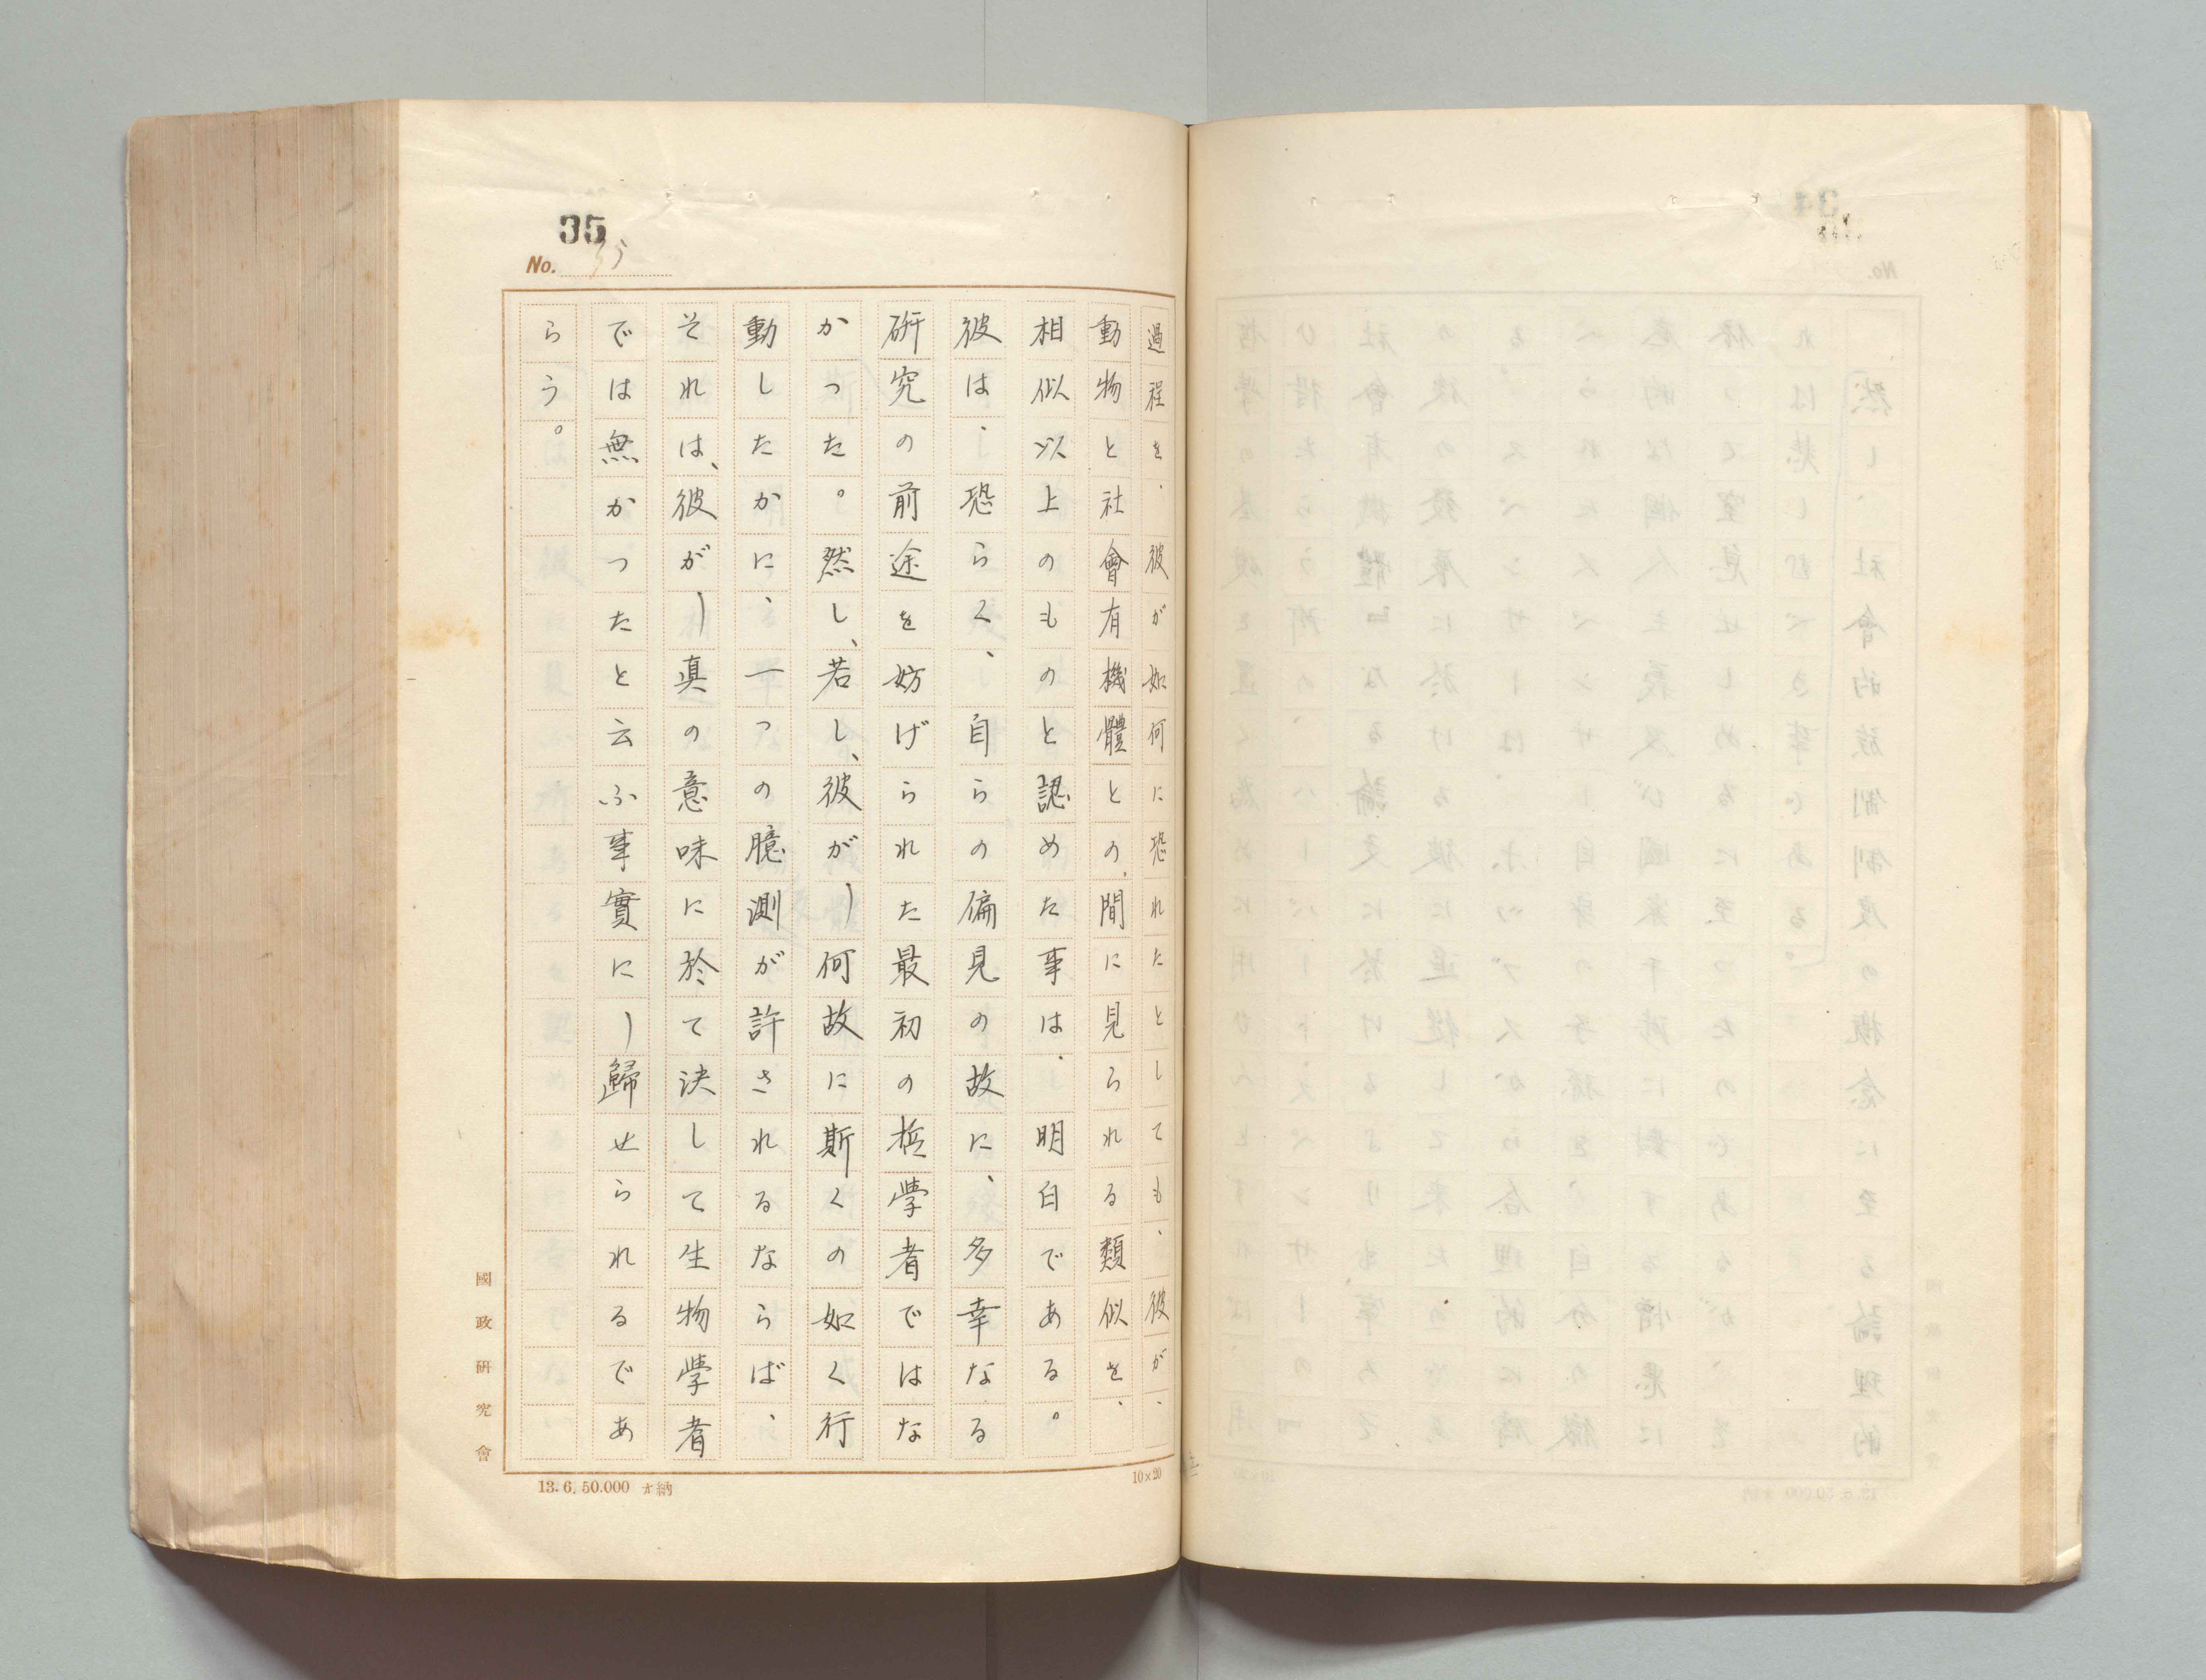 35
No. 35
過程を、彼が如何に恐れたとしても、彼が、
動物と社會有機體との間に見られる類似を、
相似以上のものと認めた事は、明白である。
彼は、恐らく、自らの偏見の故に、多幸なる
研究の前途を妨げられた最初の哲學者ではな
かつた。然し、若し、彼が―何故に斯くの如く行
動したかに、一つの臆測が許されるならば、
それは、彼が―真の意味に於て決して生物學者
では無かつたと云ふ事實に―歸せられるであ
らう。
國政研究會
13.6.50.000
10×20